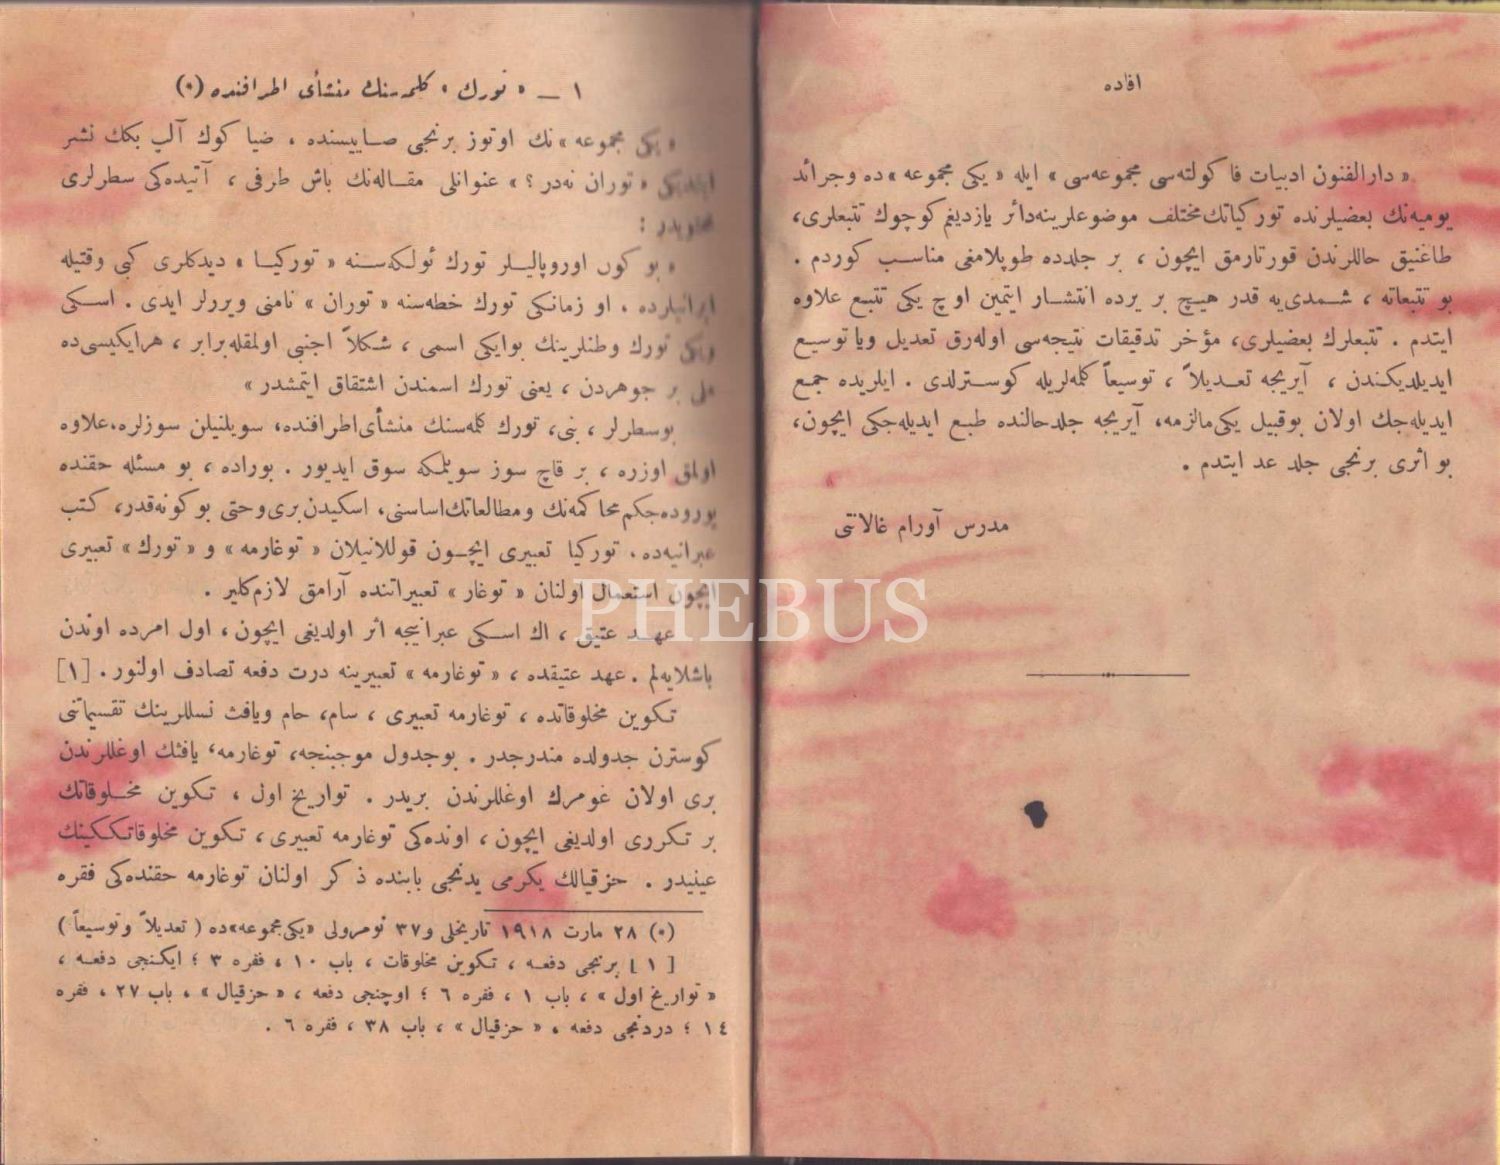 افاده
« دارالفنون ادبیات فا كولته‌سی مجموعه‌سی » ایله « یكی مجموعه » ده و جرائد
یومیه‌نك بعضیلرنده توركیاتك مختلف موضوعلرینه دائر یازدیغم كوچوك تتبعلری،
طاغنیق حاللرندن قورتارمق ایچون ، بر جلدده طوپلامغی مناسب كوردم .
بو تتبعاته ، شمدی‌یه قدر هیچ بر یرده انتشار ایتمین اوچ یكی تتبع علاوه
ایتدم . تتبعلرك بعضیلری، مؤخر تدقیقات نتیجه‌سی اوله‌رق تعدیل ویا توسیع
ایدیلدیكندن ، آیریجه تعدیلاً ، توسیعاً كلمه‌لریله كوسترلدی . ایلریده جمع
ایدیله‌جك اولان بوقبیل یكی مالزمه، آیریجه جلد حالنده طبع ایدیله‌جكی ایچون،
بو اثری برنجی جلد عد ایتدم .
مدرس آورام غالانتی
١ ــ « تورك » كلمه‌سنك منشأی اطرافنده (*)
« یكی مجموعه » نك اوتوز برنجی صاییسنده ، ضیا كوك آلپ بكك نشر
ایتدیكی « توران نه‌در ؟ » عنوانلی مقاله‌نك باش طرفی ، آتیده‌كی سطرلری
محتویدر :
« بو كون اوروپالیلر تورك ئولكه‌سنه « توركیا » دیدكلری كبی وقتیله
ایرانیلرده ، او زمانكی تورك خطه‌سنه « توران » نامنی ویررلر ایدی . اسكی
ویكی تورك وطنلرینك بوایكی اسمی ، شكلاً اجنبی اولمقله برابر ، هرایكیسی‌ده
ملی بر جوهردن ، یعنی تورك اسمندن اشتقاق ایتمشدر »
بوسطرلر ، بنی، تورك كلمه‌سنك منشأی اطرافنده، سویلنیلن سوزلره، علاوه
اولمق اوزره ، بر قاچ سوز سویلمكه سوق ایدیور . بوراده ، بو مسئله حقنده
یوروده‌جكم محاكمه‌نك ومطالعاتك اساسنی، اسكیدن بری وحتی بو كونه قدر، كتب
عبرانیه‌ده، توركیا تعبیری ایچون قوللانیلان « توغارمه » و « تورك » تعبیری
ایچون استعمال اولنان « توغار » تعبیراتنده آرامق لازم كلیر .
عهد عتیق ، اك اسكی عبرانیجه اثر اولدیغی ایچون ، اول امرده اوندن
باشلایه‌لم . عهد عتیقده ، « توغارمه » تعبیرینه درت دفعه تصادف اولنور . [١]
تكوین مخلوقاتده ، توغارمه تعبیری ، سام، حام ویافث نسللرینك تقسیماتنی
كوسترن جدولده مندرجدر . بوجدول موجبنجه، توغارمه، یافثك اوغللرندن
بری اولان غومرك اوغللرندن بریدر . تواریخ اول ، تكوین مخلوقاتك
بر تكرری اولدیغی ایچون ، اونده‌كی توغارمه تعبیری ، تكوین مخلوقاتككینك
عینیدر . حزقیالك یكرمی یدنجی بابنده ذكر اولنان توغارمه حقنده‌كی فقره
(*) ٢٨ مارت ١٩١٨ تاریخلی و ٣٧ نومرولی «یكی مجموعه» ده ( تعدیلاً وتوسیعاً )
[ ١ ] برنجی دفعه ، تكوین مخلوقات ، باب ١٠ ، فقره ٣ ؛ ایكنجی دفعه ،
« تواریخ اول » ، باب ١ ، فقره ٦ ؛ اوچنجی دفعه ، « حزقیال » ، باب ٢٧ ، فقره
١٤ ؛ دردنجی دفعه ، « حزقیال » ، باب ٣٨ ، فقره ٦ .
PHEBUS